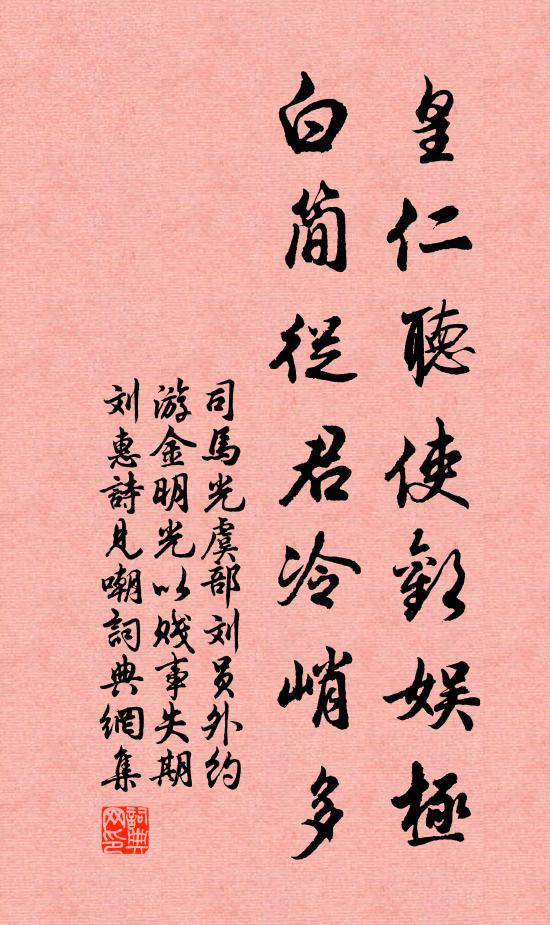 皇仁聽使歡娱極
白简從君冷峭多
司馬光虞部刘員外約
游金明光以賤事失期
刘惠詩見嘲詞典網集
詞典
网印